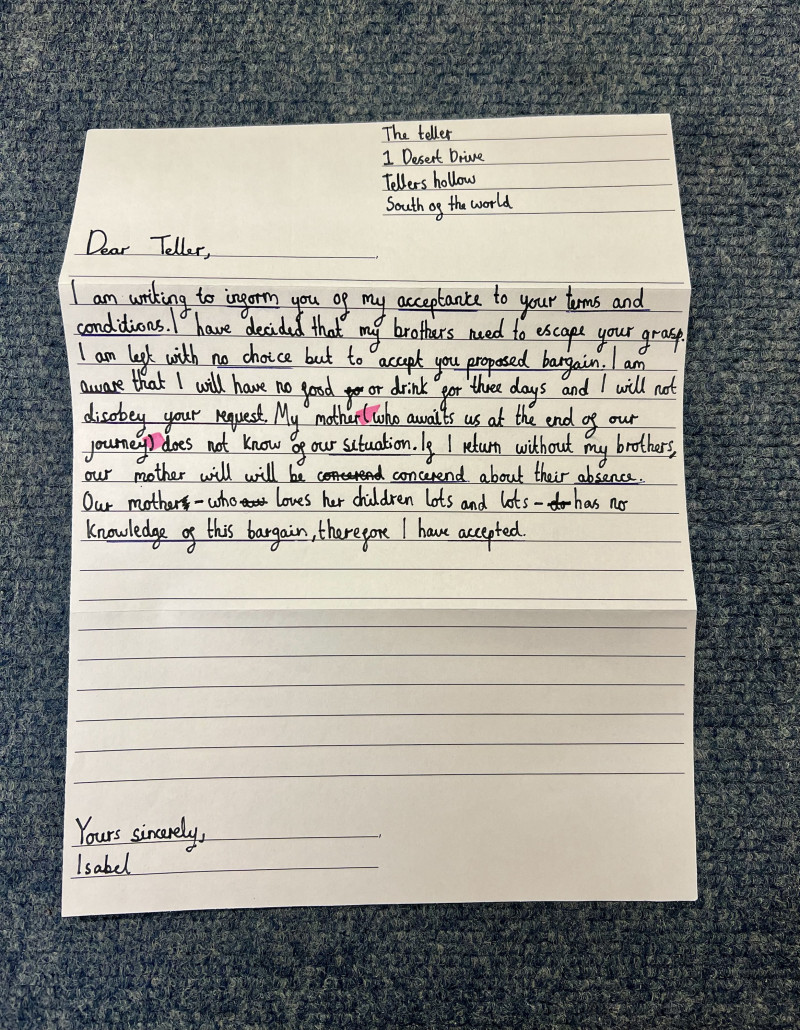 The teller
1 Desert Drive
Tellers hollow
South of the world
Dear Teller,
I am writing to inform you of my acceptance to your terms and
conditions. I have decided that my brothers need to escape your grasp.
I am left with no choice but to accept you proposed bargain. I am
aware that I will have no food or drink for three days and I will not
disobey your request. My mother (who awaits us at the end of our
journey) does not know of our situation. If I return without my brothers,
our mother will will be concerend concerend about their absence.
Our mother - who loves her children lots and lots - has no
knowledge of this bargain, therefore I have accepted.
Yours sincerely,
Isabel